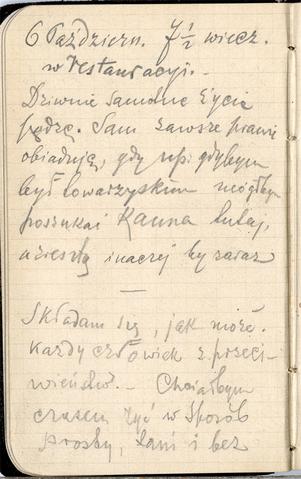 6 Październ. 7½ wiecz.
w restauracyi. –
Dziwnie samotne życie
pędzę. Sam zawsze prawie
obiaduję, gdy np. gdybym
był towarzyskim mógłbym
poszukać Kauna tutaj,
a zresztą inaczej by zaraz
—
Składam się, jak może
każdy człowiek z przeci-
wieństw. – Chciałbym
czasem żyć w sposób
prosty, tani i bez